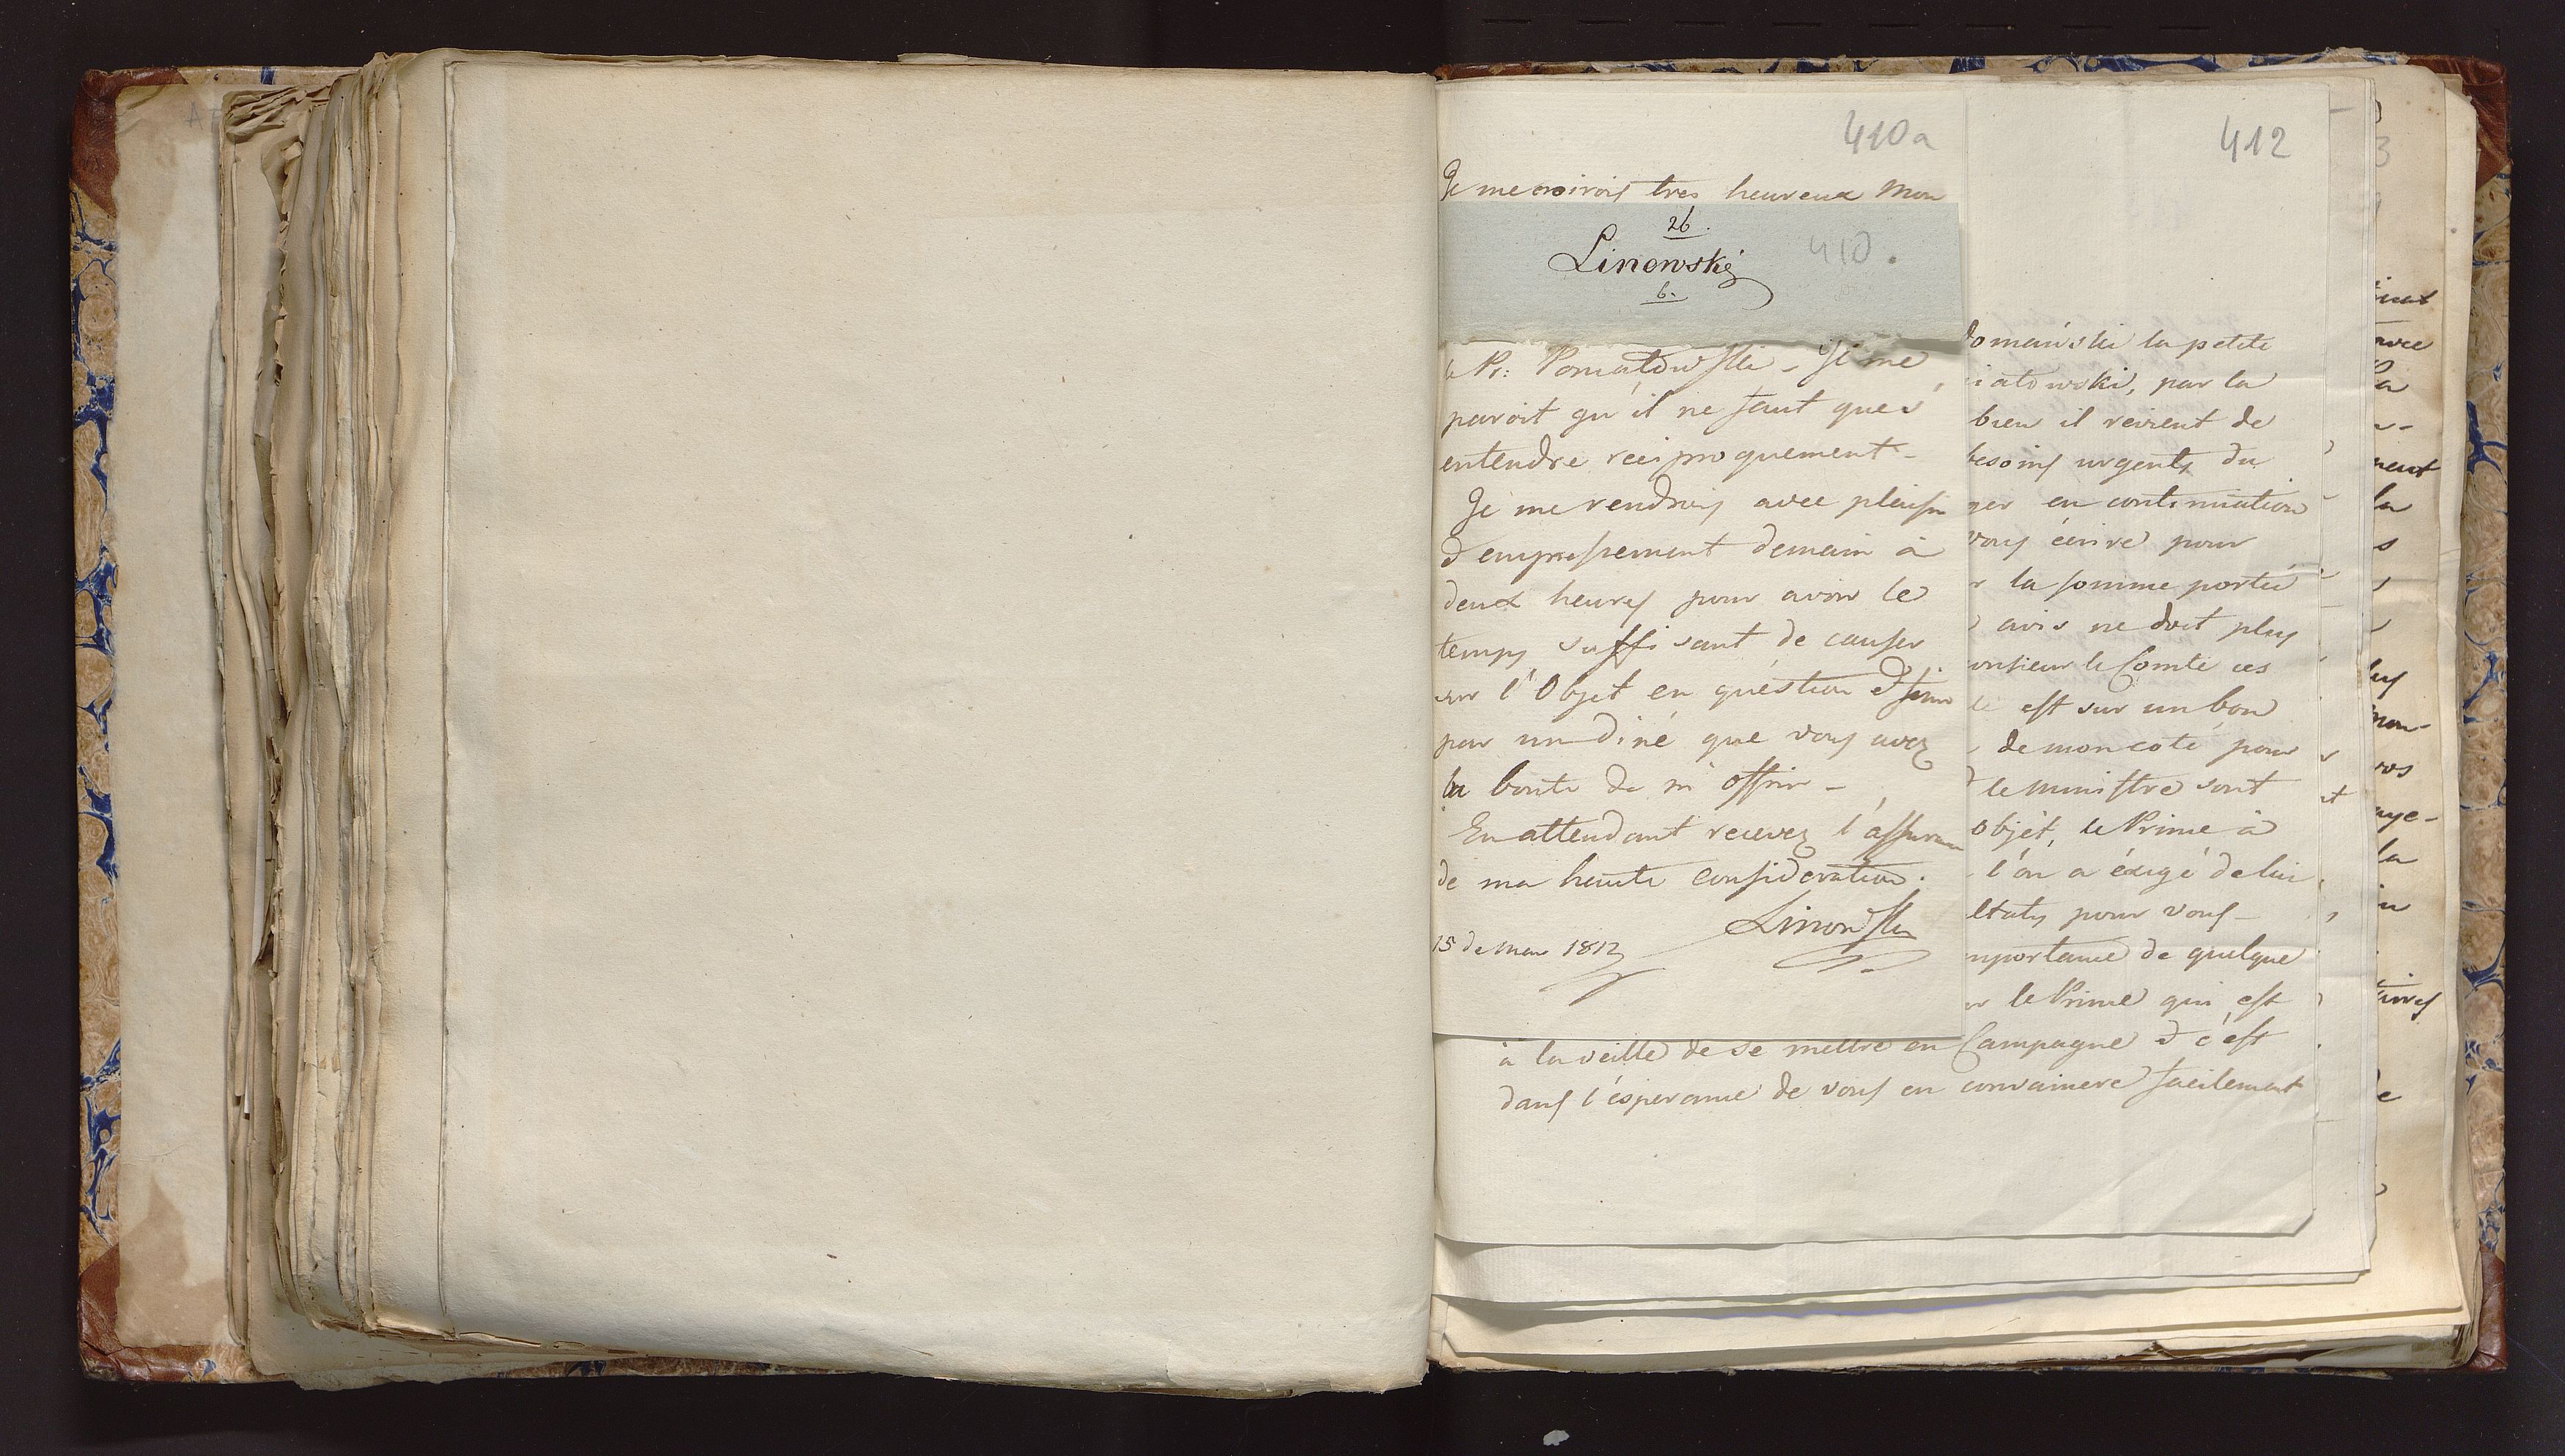 410a
Je me croirois tres heureux Mon
26.
Linowski
410.
6.
le Pr: Poniatowski - Il me
paroit qu'il ne faut que s'
entendre reciproquement -
Je me rendrois avec plaisir
d'empressement demain à
deux heures pour avoir le
temps suffisant de causer
sur l'Objet en question &
par un diné que vous avez
la bonté de m'offrir -
En attendant recevez l'assurance
de ma haute consideration.
Linowski
15 de Mars 1812
412
domański la petite
iatowski, par la
bien il revient de
besoins urgents du
ger en continuation
vous écrire pour
r la somme portée
avis ne doit plus
onsieur le Comte ces
est sur un bon
de mon coté pour
le Ministre sont
objèt, le Prince à
l'on a éxigé de lui
ltats pour vous -
mportance de quelque
le Prince qui est
à la veille de se mettre en Campagne & c'est
dans l'ésperance de vous en convaincre facilement
avec
la
n-
ment
la
s
mon-
vos
aye-
la
de